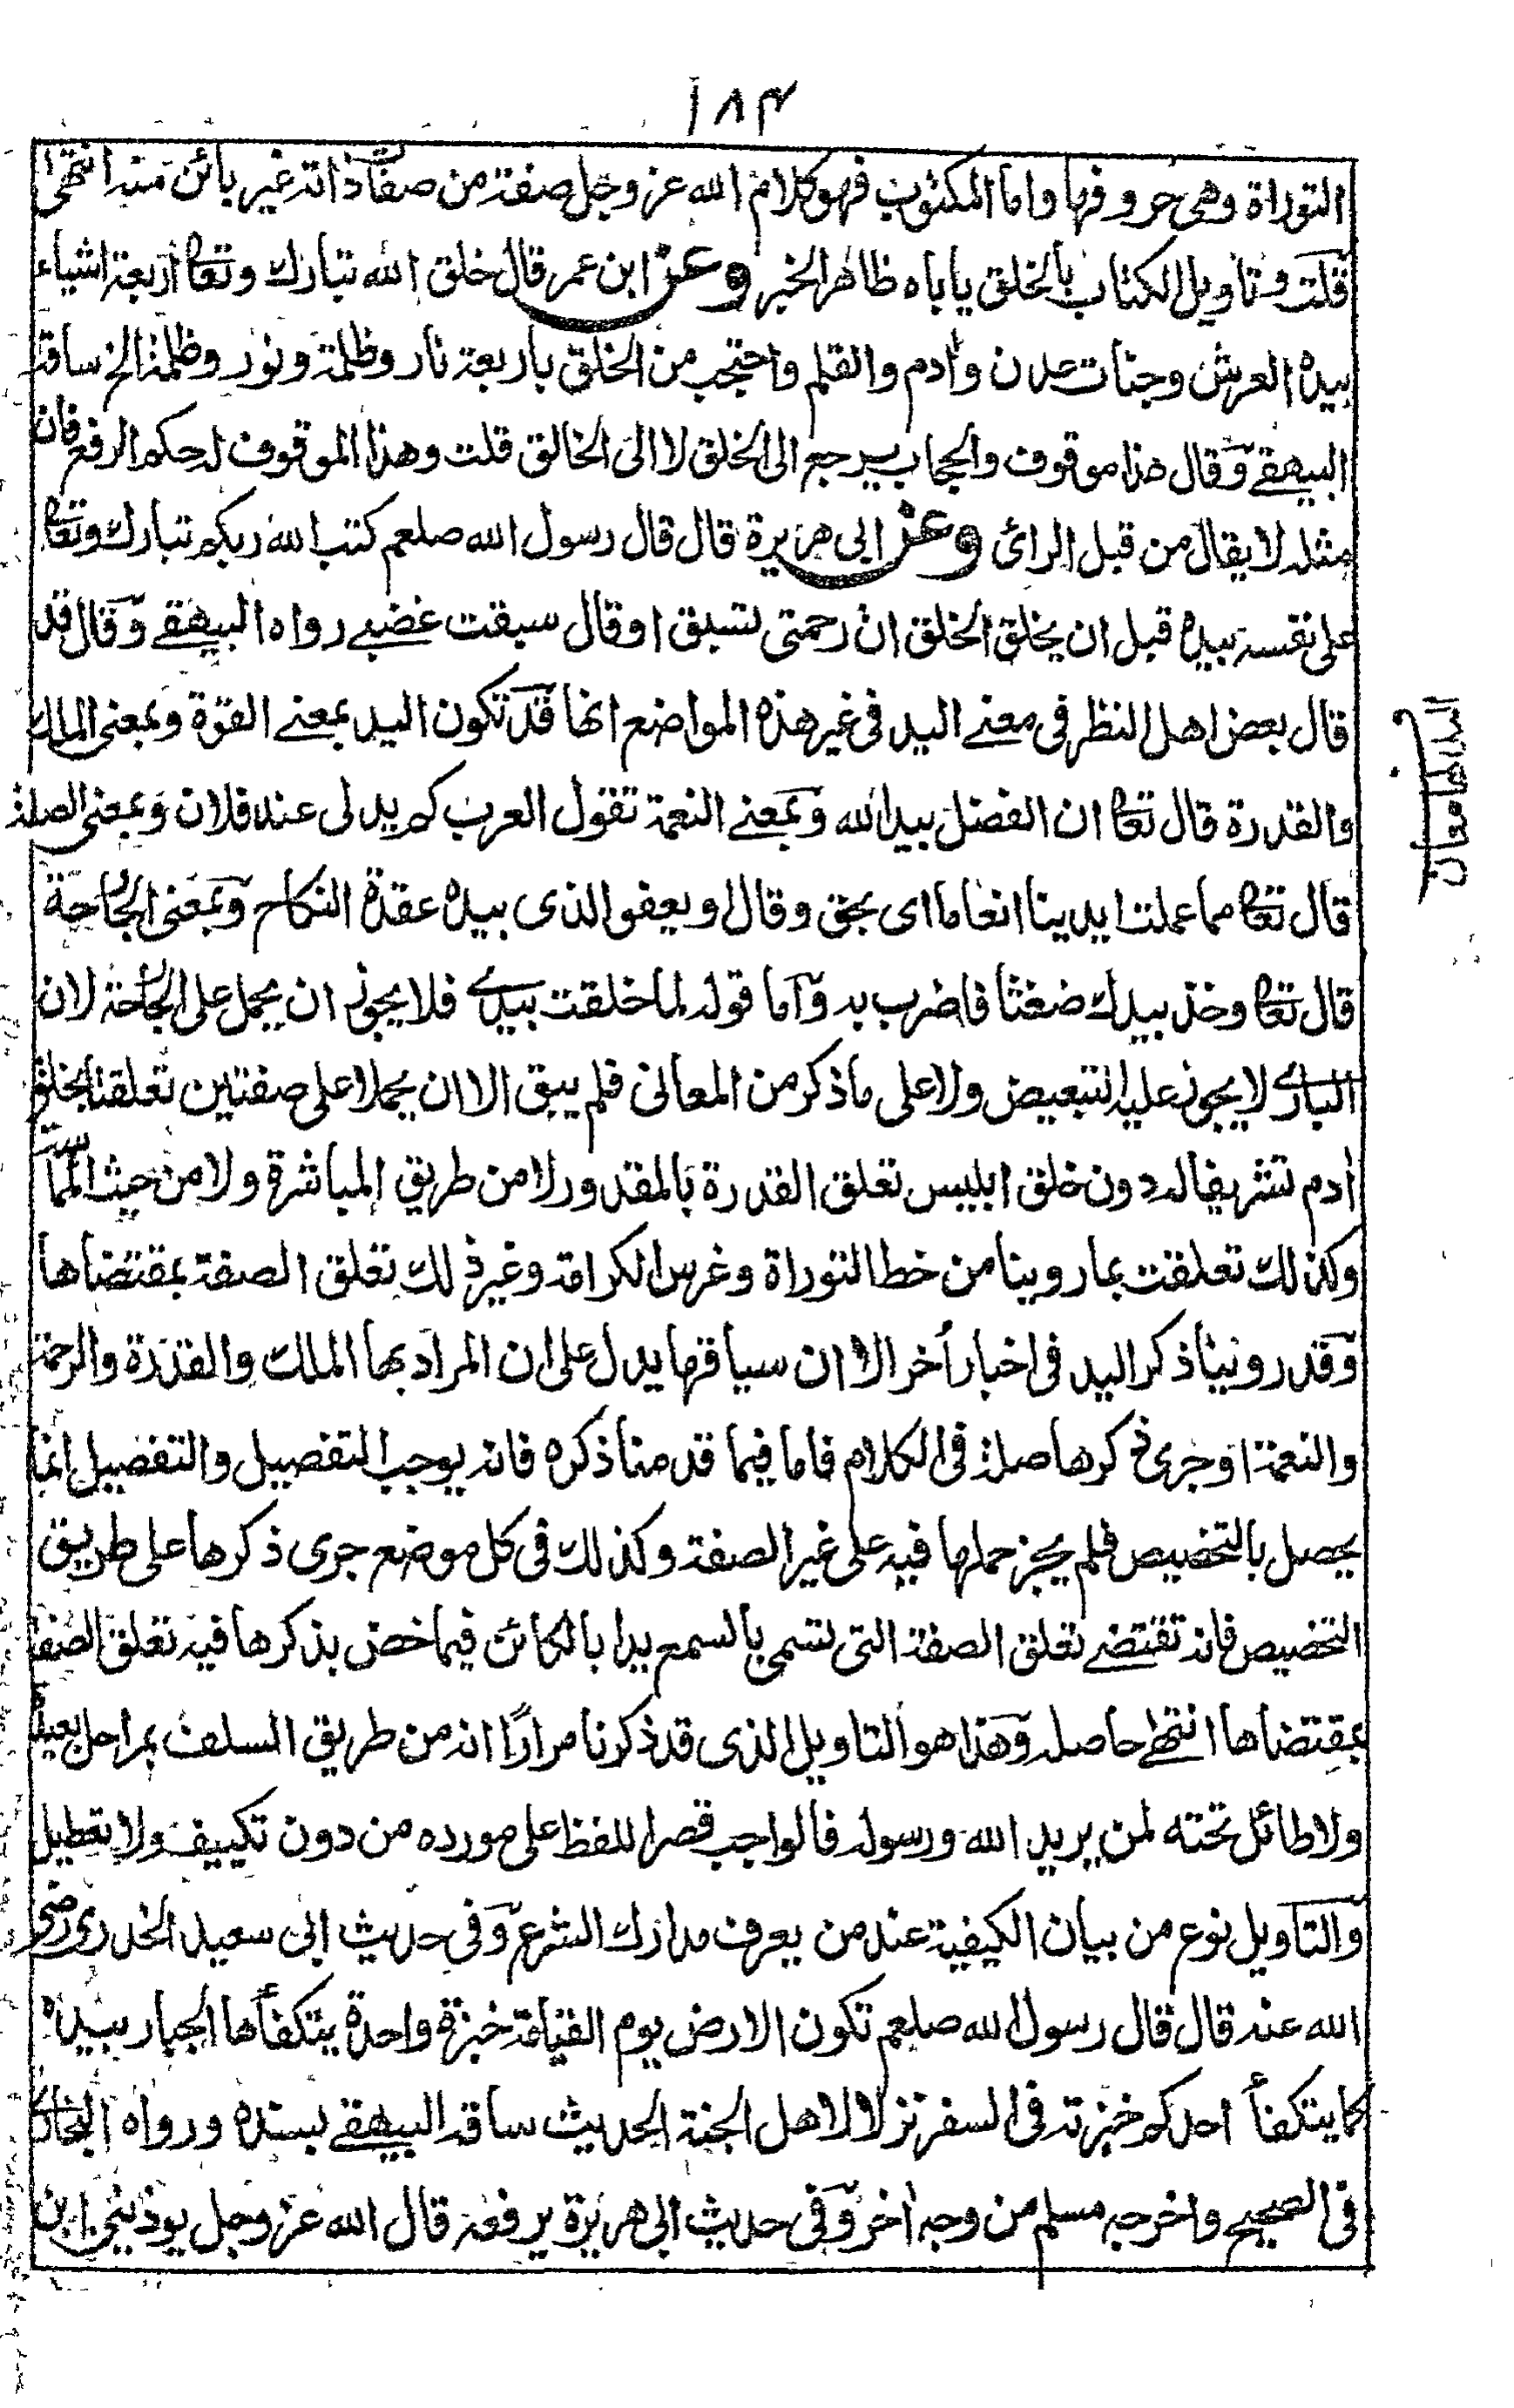 ١٨٣
التوراة وهى حروفها واما المكتوب فهو كلام الله عز وجل صفة من صفات ذاته غير بائن منه انتهى
قلت وتاويل الكتاب بالخلق ياباه ظاهر الخبر وعن ابن عمر قال خلق الله تبارك وتعا اربعة اشياء
بيده العرش وجنات عدن وآدم والقلم واحتجب من الخلق باربعة نار وظلمة ونور وظلمة الخ ساقه
البيهقے وقال هذا موقوف والحجاب يرجع الى الخلق لا الى الخالق قلت وهذا الموقوف له حكم الرفع فان
مثله لا يقال من قبل الرائ وعن ابى هريرة قال قال رسول الله صلعم كتب الله ربكم تبارك وتعا
على نفسه بيده قبل ان يخلق الخلق ان رحمتى تسبق او قال سبقت غضبے رواه البيهقے وقال قد
قال بعض اهل النظر فى معنے اليد فى غير هذه المواضع انها قد تكون اليد بمعنے القوة وبمعنى الملك
والقدرة قال تعا ان الفضل بيد الله وبمعنے النعمة تقول العرب كم يد لى عند فلان وبمعنى الصلة
قال تعا مما عملت ايدينا انعاما اى بحق وقال او يعفو الذى بيده عقدة النكاح وبمعنى الجارحة
قال تعا وخذ بيدك ضغثا فاضرب به واما قوله لما خلقت بيدے فلا يجوز ان يحمل على الجارحة لان
البارے لا يجوز عليه التبعيض ولا على ما ذكر من المعانى فلم يبق الا ان يحملا على صفتين تعلقتا بخلق
آدم تشريفا له دون خلق ابليس تعلق القدرة بالمقدور لا من طريق المباشرة ولا من حيث المماسة
وكذلك تعلقت بما روينا من خط التوراة وغرس الكرامة وغير ذلك تعلق الصفة بمقتضاها
وقد روينا ذكر اليد فى اخبار أخر الا ان سياقها يدل على ان المراد بها الملك والقدرة والرحمة
والنعمة او جرى ذكرها صلة فى الكلام فاما فيما قدمنا ذكره فانه يوجب التفصيل والتفضيل انما
يحصل بالتخصيص فلم يجز حملها فيه على غير الصفة وكذلك فى كل موضع جرى ذكرها على طريق
التخصيص فانه تقتضے تعلق الصفة التى تسمى بالسمع يدا بالكائن فيما خص بذكرها فيه تعلق الصفة
بمقتضاها انتهى حاصله وهذا هو التاويل الذى قد ذكرنا مرارًا انه من طريق السلف بمراحل بعيدة
ولا طائل تحته لمن يريد الله ورسوله فالواجب قصر اللفظ على مورده من دون تكييف ولا تعطيل
والتاويل نوع من بيان الكيفية عند من يعرف مدارك الشرع وفى حديث ابى سعيد الخدرى رضى
الله عنه قال قال رسول الله صلعم تكون الارض يوم القيامة خبزة واحدة يتكفأها الجبار بيده
كما يتكفأ احدكم خبزته فى السفر نزلا لاهل الجنة الحديث ساقه البيهقے بسنده ورواه البخارے
فى الصحيح واخرجه مسلم من وجه آخر وفى حديث ابى هريرة يرفعه قال الله عز وجل يوذينى ابن